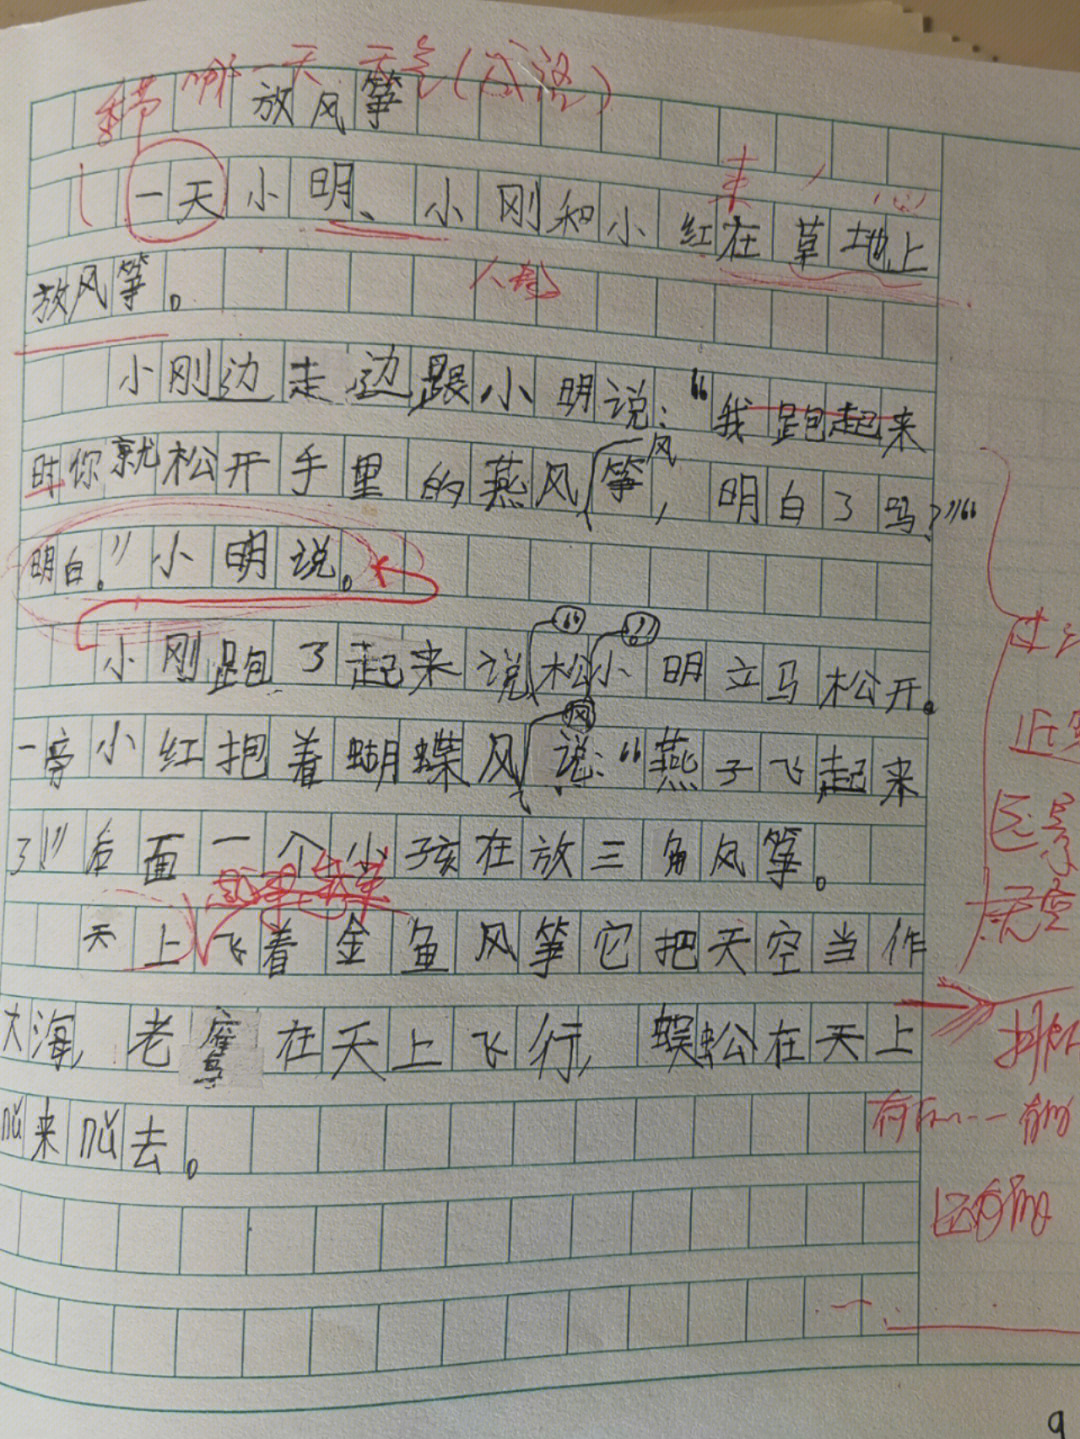 季节 哪一天 天气(成语)
放风筝
一天小明、小刚和小红在草地上
来
放风筝。
人物
小刚边走边跟小明说:“我跑起来
时你就松开手里的燕风筝,明白了吗?”“
风
明白。”小明说。
小刚跑了起来说松小明立马松开。
“ !”
一旁小红抱着蝴蝶风说:“燕子飞起来
风
了!”后面一个小孩在放三角风筝。
天上飞着金鱼风筝它把天空当作
大海,老鹰在天上飞行,蜈蚣在天上
来 去。
近
远景
天空
排比
有的……有的
还有的
9